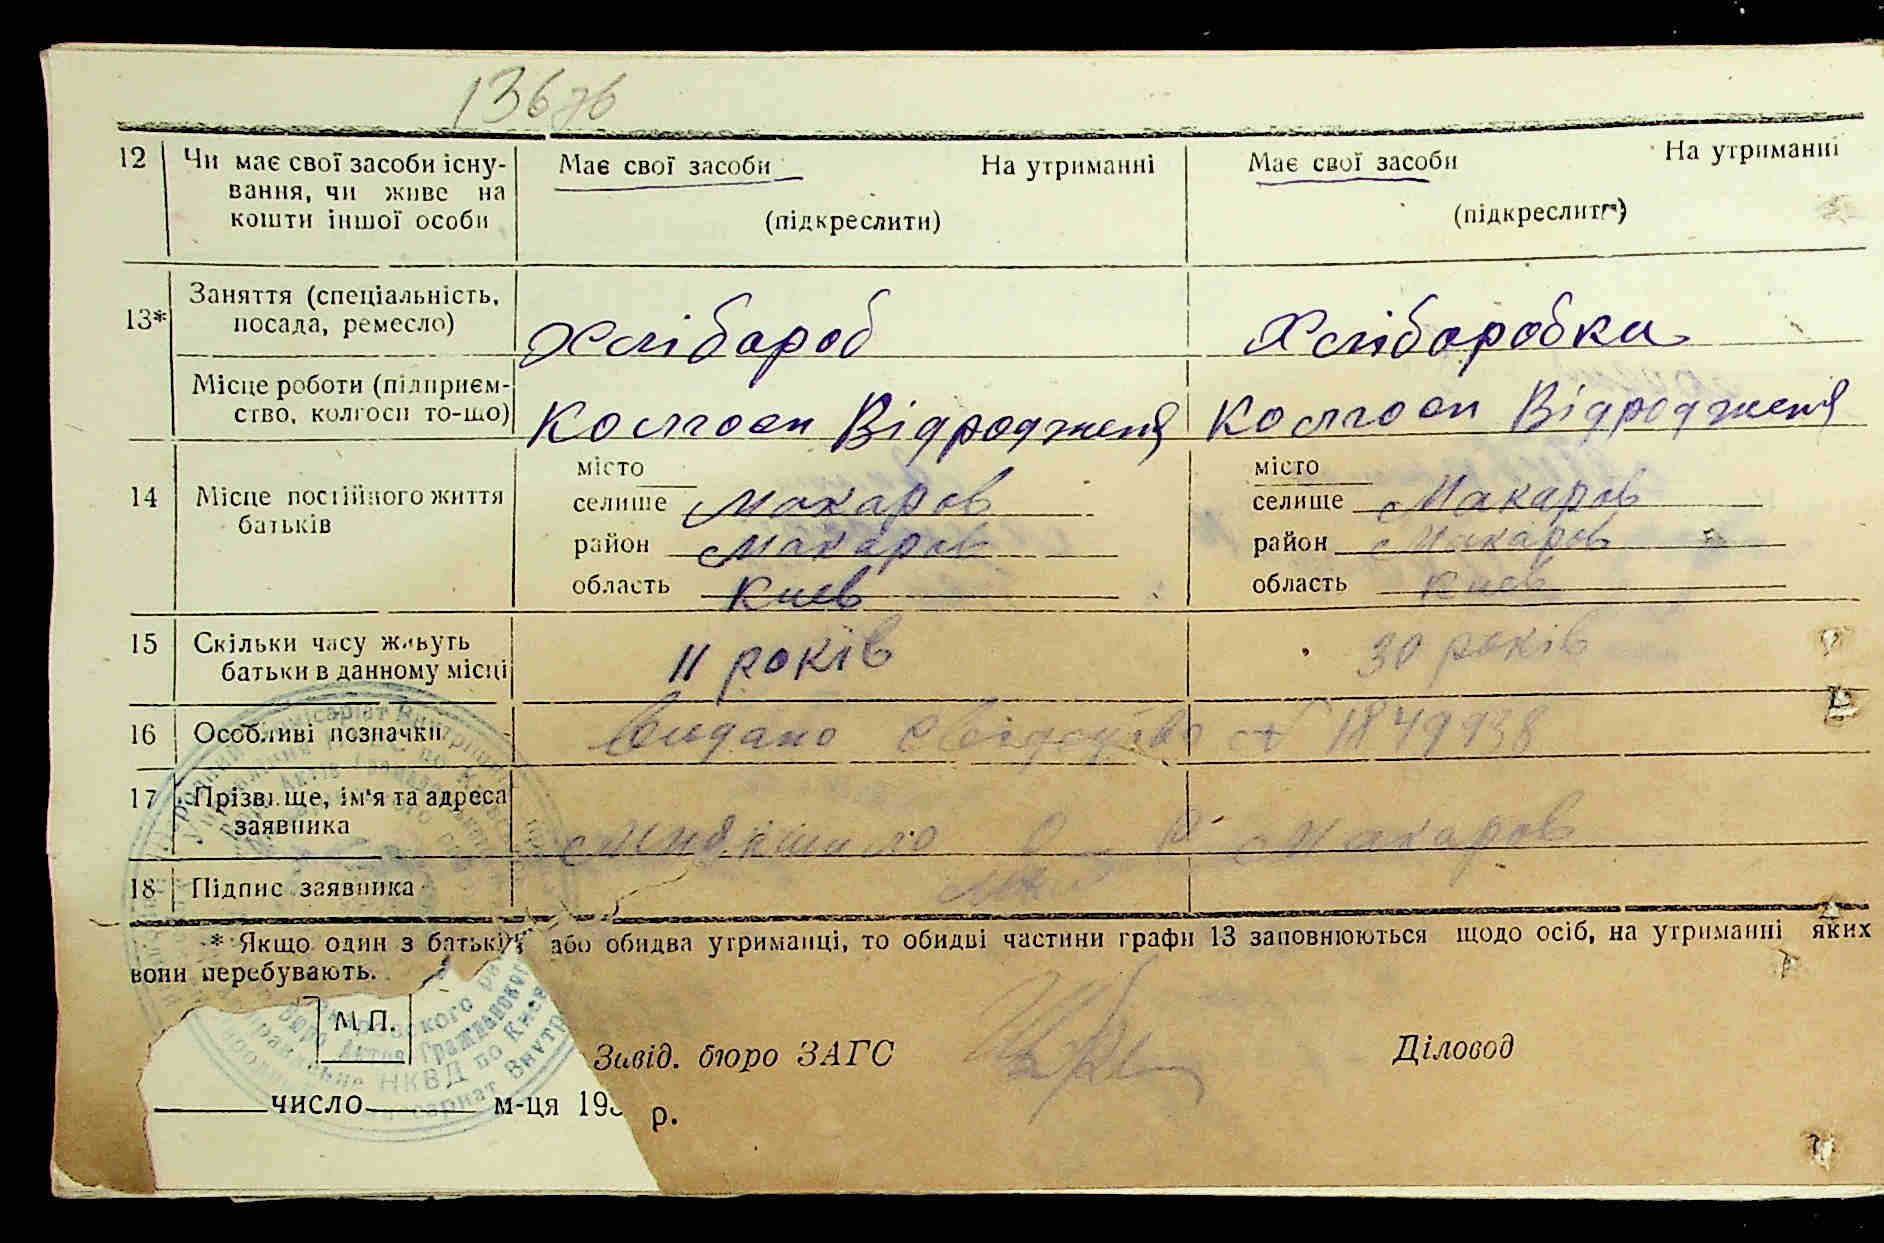 136 зв
12 Чи має свої засоби існу-
вання, чи живе на
кошти іншої особи
Має свої засоби На утриманні
(підкреслити)
Має свої засоби На утриманні
(підкреслити)
13* Заняття (спеціальність,
посада, ремесло)
Хлібароб
Хлібаробка
Місце роботи (підприєм-
ство, колгосп то-що)
Колгосп Відродженя
Колгосп Відродженя
14 Місце постійного життя
батьків
місто
селище Макаров
район Макаров
область Киев
місто
селище Макаров
район Макаров
область Киев
15 Скільки часу живуть
батьки в данному місці
11 років
30 років
16 Особливі позначки
Видано свідоцтво № 1849938
17 Прізвище, ім'я та адреса
заявника
Макаров
18 Підпис заявника
* Якщо один з батьків або обидва утриманці, то обидві частини графи 13 заповнюються щодо осіб, на утриманні яких
вони перебувають.
М.П.
Завід. бюро ЗАГС
Діловод
число м-ця 193 р.